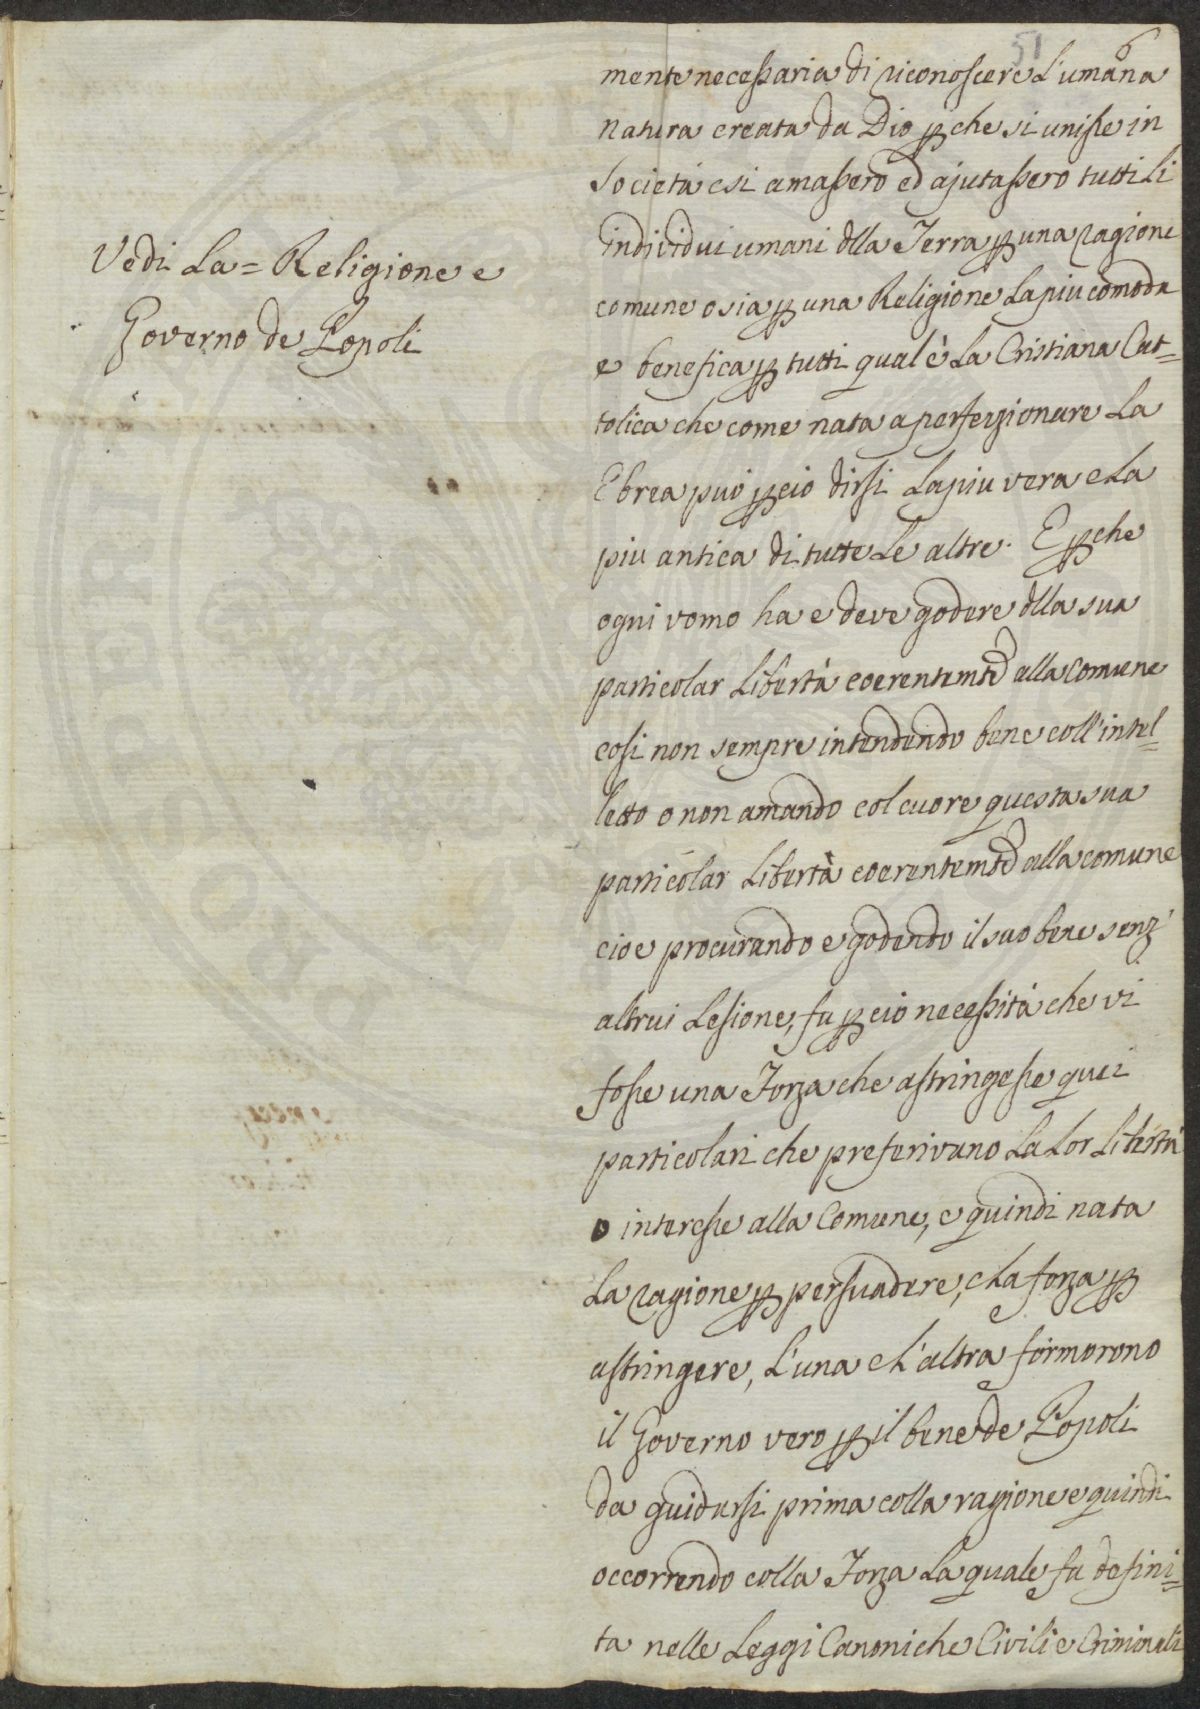 51
6
mente necessaria di riconoscere L'umana
natura creata da Dio p che si unisse in
Società e si amassero ed ajutassero tutti li
individui umani dlla Terra p una ragione
comune o sia p una Religione La piu comoda
e benefica p tutti qual è La Cristiana Cat=
tolica che come nata a perfezionare La
Ebrea può p ciò dirsi La piu vera e La
piu antica di tutte Le altre. E p che
ogni vomo ha e deve godere dlla sua
particolar Libertà coerentemte alla Comune
cosi non sempre intendendo bene coll'intel=
letto o non amando col cuore questa sua
particolar Libertà coerentemte alla comune
cioe procurando e godendo il suo bene senz'
altrui Lesione, fu p ciò necessità che vi
fosse una Forza che astringesse quei
particolari che preferivano La Lor Libertà
o interesse alla Comune, e quindi nata
La ragione p persuadere, e La forza p
astringere, L'una e L'altra formorono
il Governo vero p il bene de Popoli
da guidarsi prima colla ragione e quindi
occorrendo colla Forza La quale fu defini=
ta nelle Leggi Canoniche Civili e Criminali
Vedi La= Religione e
Governo de Popoli